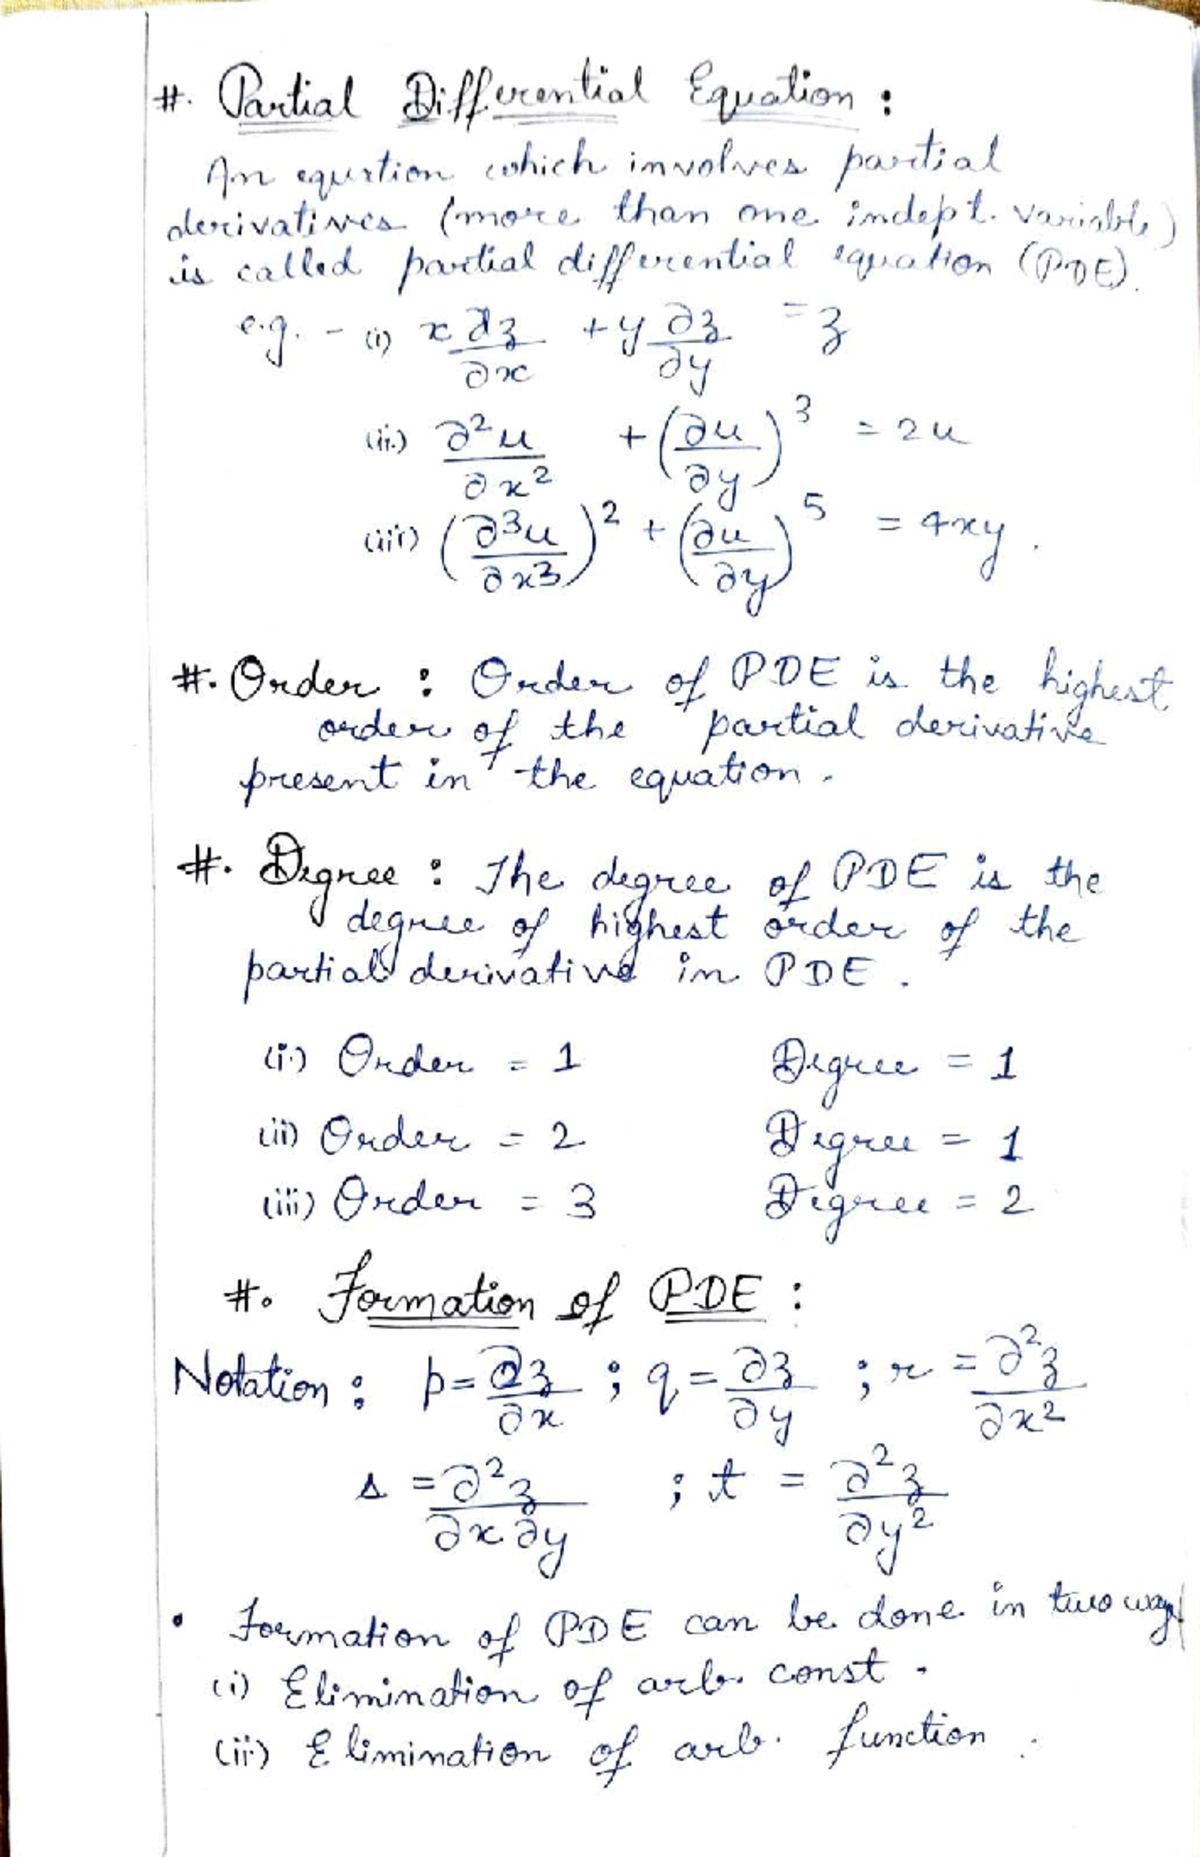 #. Partial Differential Equation :
An equation which involves partial
derivatives (more than one indept. variable)
is called partial differential equation (PDE).
e.g. - (i) x ∂z/∂x + y ∂z/∂y = z
(ii.) ∂²u/∂x² + (∂u/∂y)³ = 2u
(iii) (∂³u/∂x³)² + (∂u/∂y)⁵ = 4xy .
#. Order : Order of PDE is the highest
order of the partial derivative
present in the equation .
#. Degree : The degree of PDE is the
degree of highest order of the
partial derivative in PDE .
(i.) Order = 1 Degree = 1
(ii) Order = 2 Degree = 1
(iii) Order = 3 Degree = 2
#. Formation of PDE :
Notation : p = ∂z/∂x ; q = ∂z/∂y ; r = ∂²z/∂x²
s = ∂²z/∂x∂y ; t = ∂²z/∂y²
• Formation of PDE can be done in two ways
(i) Elimination of arb. const .
(ii) Elimination of arb. function .